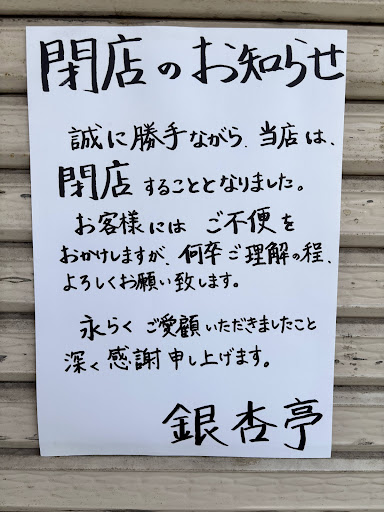 閉店のお知らせ
誠に勝手ながら、当店は、
閉店することとなりました。
お客様には ご不便を
おかけしますが、何卒ご理解の程、
よろしくお願い致します。
永らく ご愛顧いただきましたこと
深く感謝申し上げます。
銀杏亭